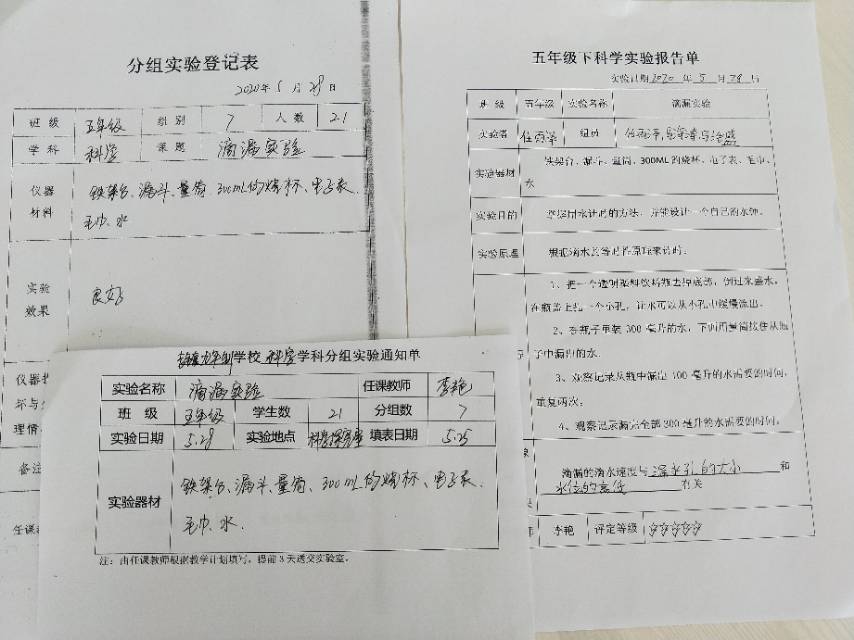 分组实验登记表
2020年5月28日
班 级 五年级 组 别 7 人 数 21
学 科 科学 课 题 滴漏实验
仪器
材料
铁架台、漏斗、量筒、300ML的烧杯、电子表、
毛巾、水
实验
效果
良好
仪器
坏与
理情
备注
任课
学校 科学学科分组实验通知单
实验名称 滴漏实验 任课教师 李艳
班 级 五年级 学生数 21 分组数 7
实验日期 5.28 实验地点 科学探究室 填表日期 5.25
实验器材
铁架台、漏斗、量筒、300ML的烧杯、电子表、
毛巾、水.
注：由任课教师根据教学计划填写，提前3天送交实验室。
五年级下科学实验报告单
实验日期2020年5月28日
班 级 五年级 实验名称 滴漏实验
实验者 组员
实验器材
铁架台、漏斗、量筒、300ML的烧杯、电子表、毛巾、
水
实验目的 掌握用水计时的方法，并能设计一个自己的水钟。
实验原理 根据滴水的等时性原理来计时。
1、把一个透明塑料饮料瓶去掉底部，倒过来盛水，
在瓶盖上扎一个小孔，让水可以从小孔中缓慢流出。
2、在瓶子里装300毫升的水，下面用量筒接住从瓶
子中漏出的水。
3、观察记录从瓶中漏出100毫升的水需要的时间，
重复两次。
4、观察记录漏完全部300毫升的水需要的时间。
滴漏的滴水速度与 滴水孔的大小 和
水位的高低 有关
李艳 评定等级 ☆☆☆☆☆